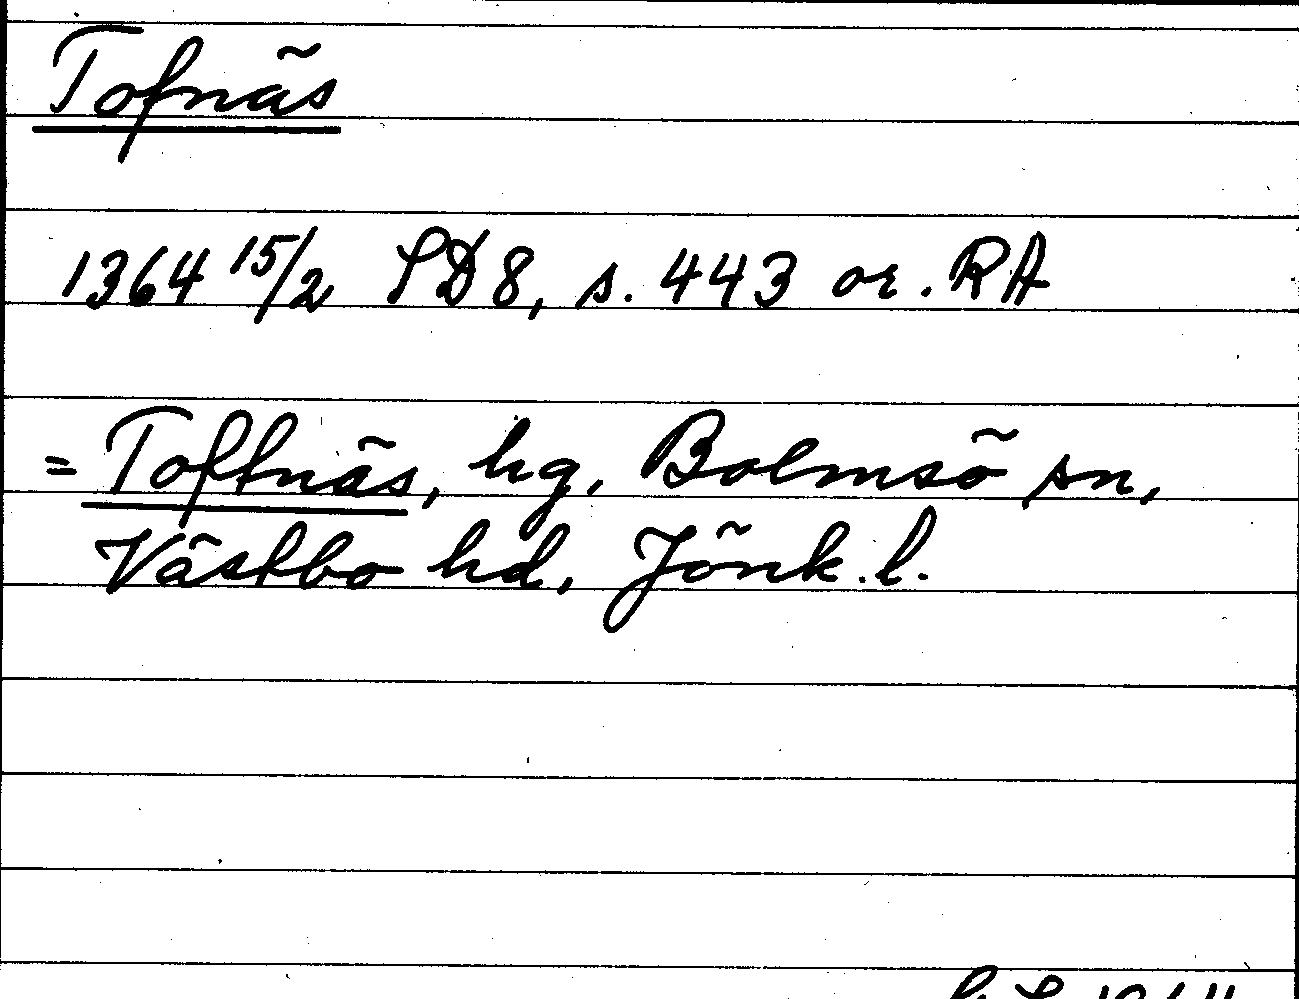 Tofnäs
1364 15/2 SD8, s. 443 or. RA
= Toftnäs, hg, Bolmsö sn,
Västbo hd, Jönk. l.